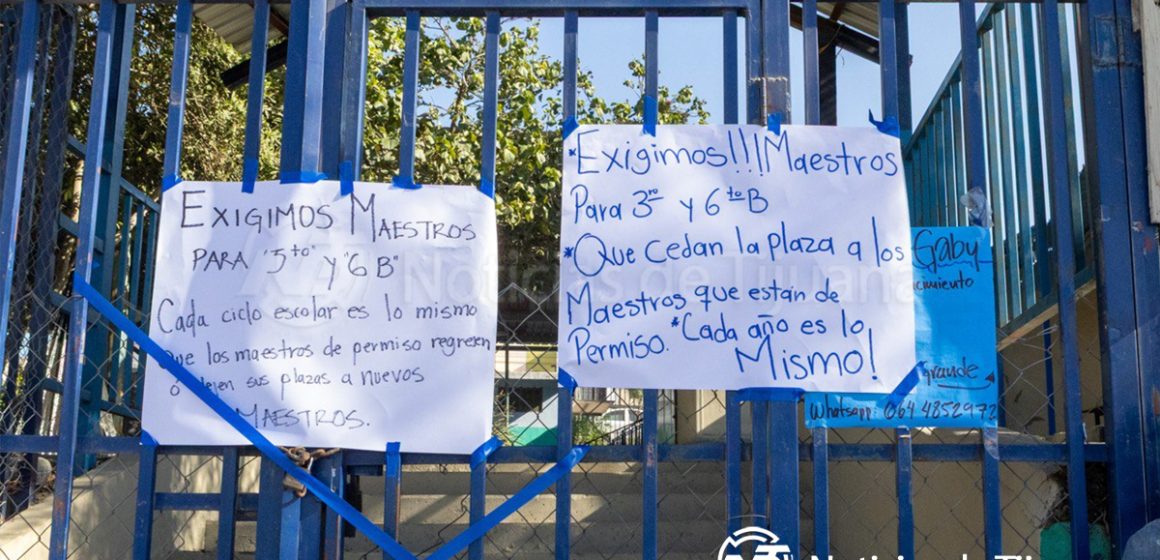 EXIGIMOS MAESTROS
PARA "5to" y "6 B"
Cada ciclo escolar es lo mismo
que los maestros de permiso regresen
ó dejen sus plazas a nuevos
MAESTROS.
*Exigimos!!! Maestros
Para 3ro y 6to B
*Que cedan la plaza a los
Maestros que están de
Permiso. *Cada año es lo
Mismo!
Gaby
Grande
Whatsapp: 064 4852972
Noticias de Tijuana